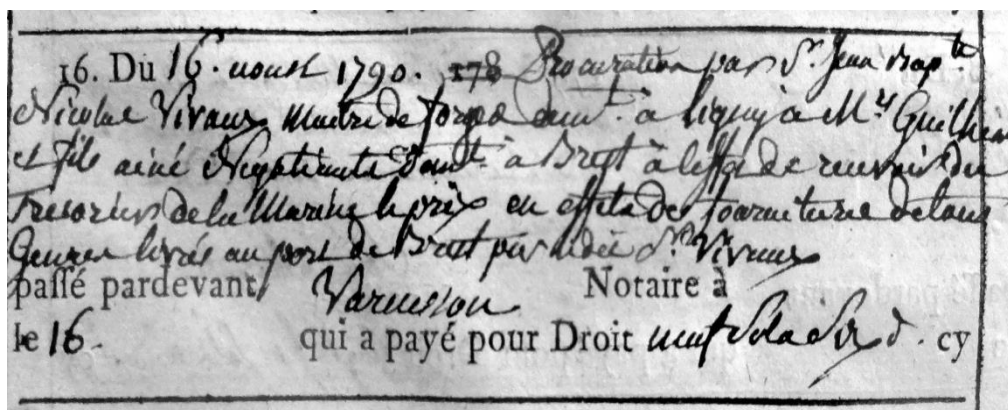 16. Du 16. aoust 1790. 178 Procuration par Sr. Jean Bapte
Nicolas Vivaux Maitre de forges demt. à Ligny à Mrs Guilhem
et fils ainé Negotiants demt. à Brest à l'effet de recevoir du
Tresorier de la Marine le prix en effets des fourniture de tous
Genres livrés au port de Brest par ledit Sr. Vivaux
passé pardevant Varnesson Notaire à
le 16. qui a payé pour Droit neuf Sols Six d. cy